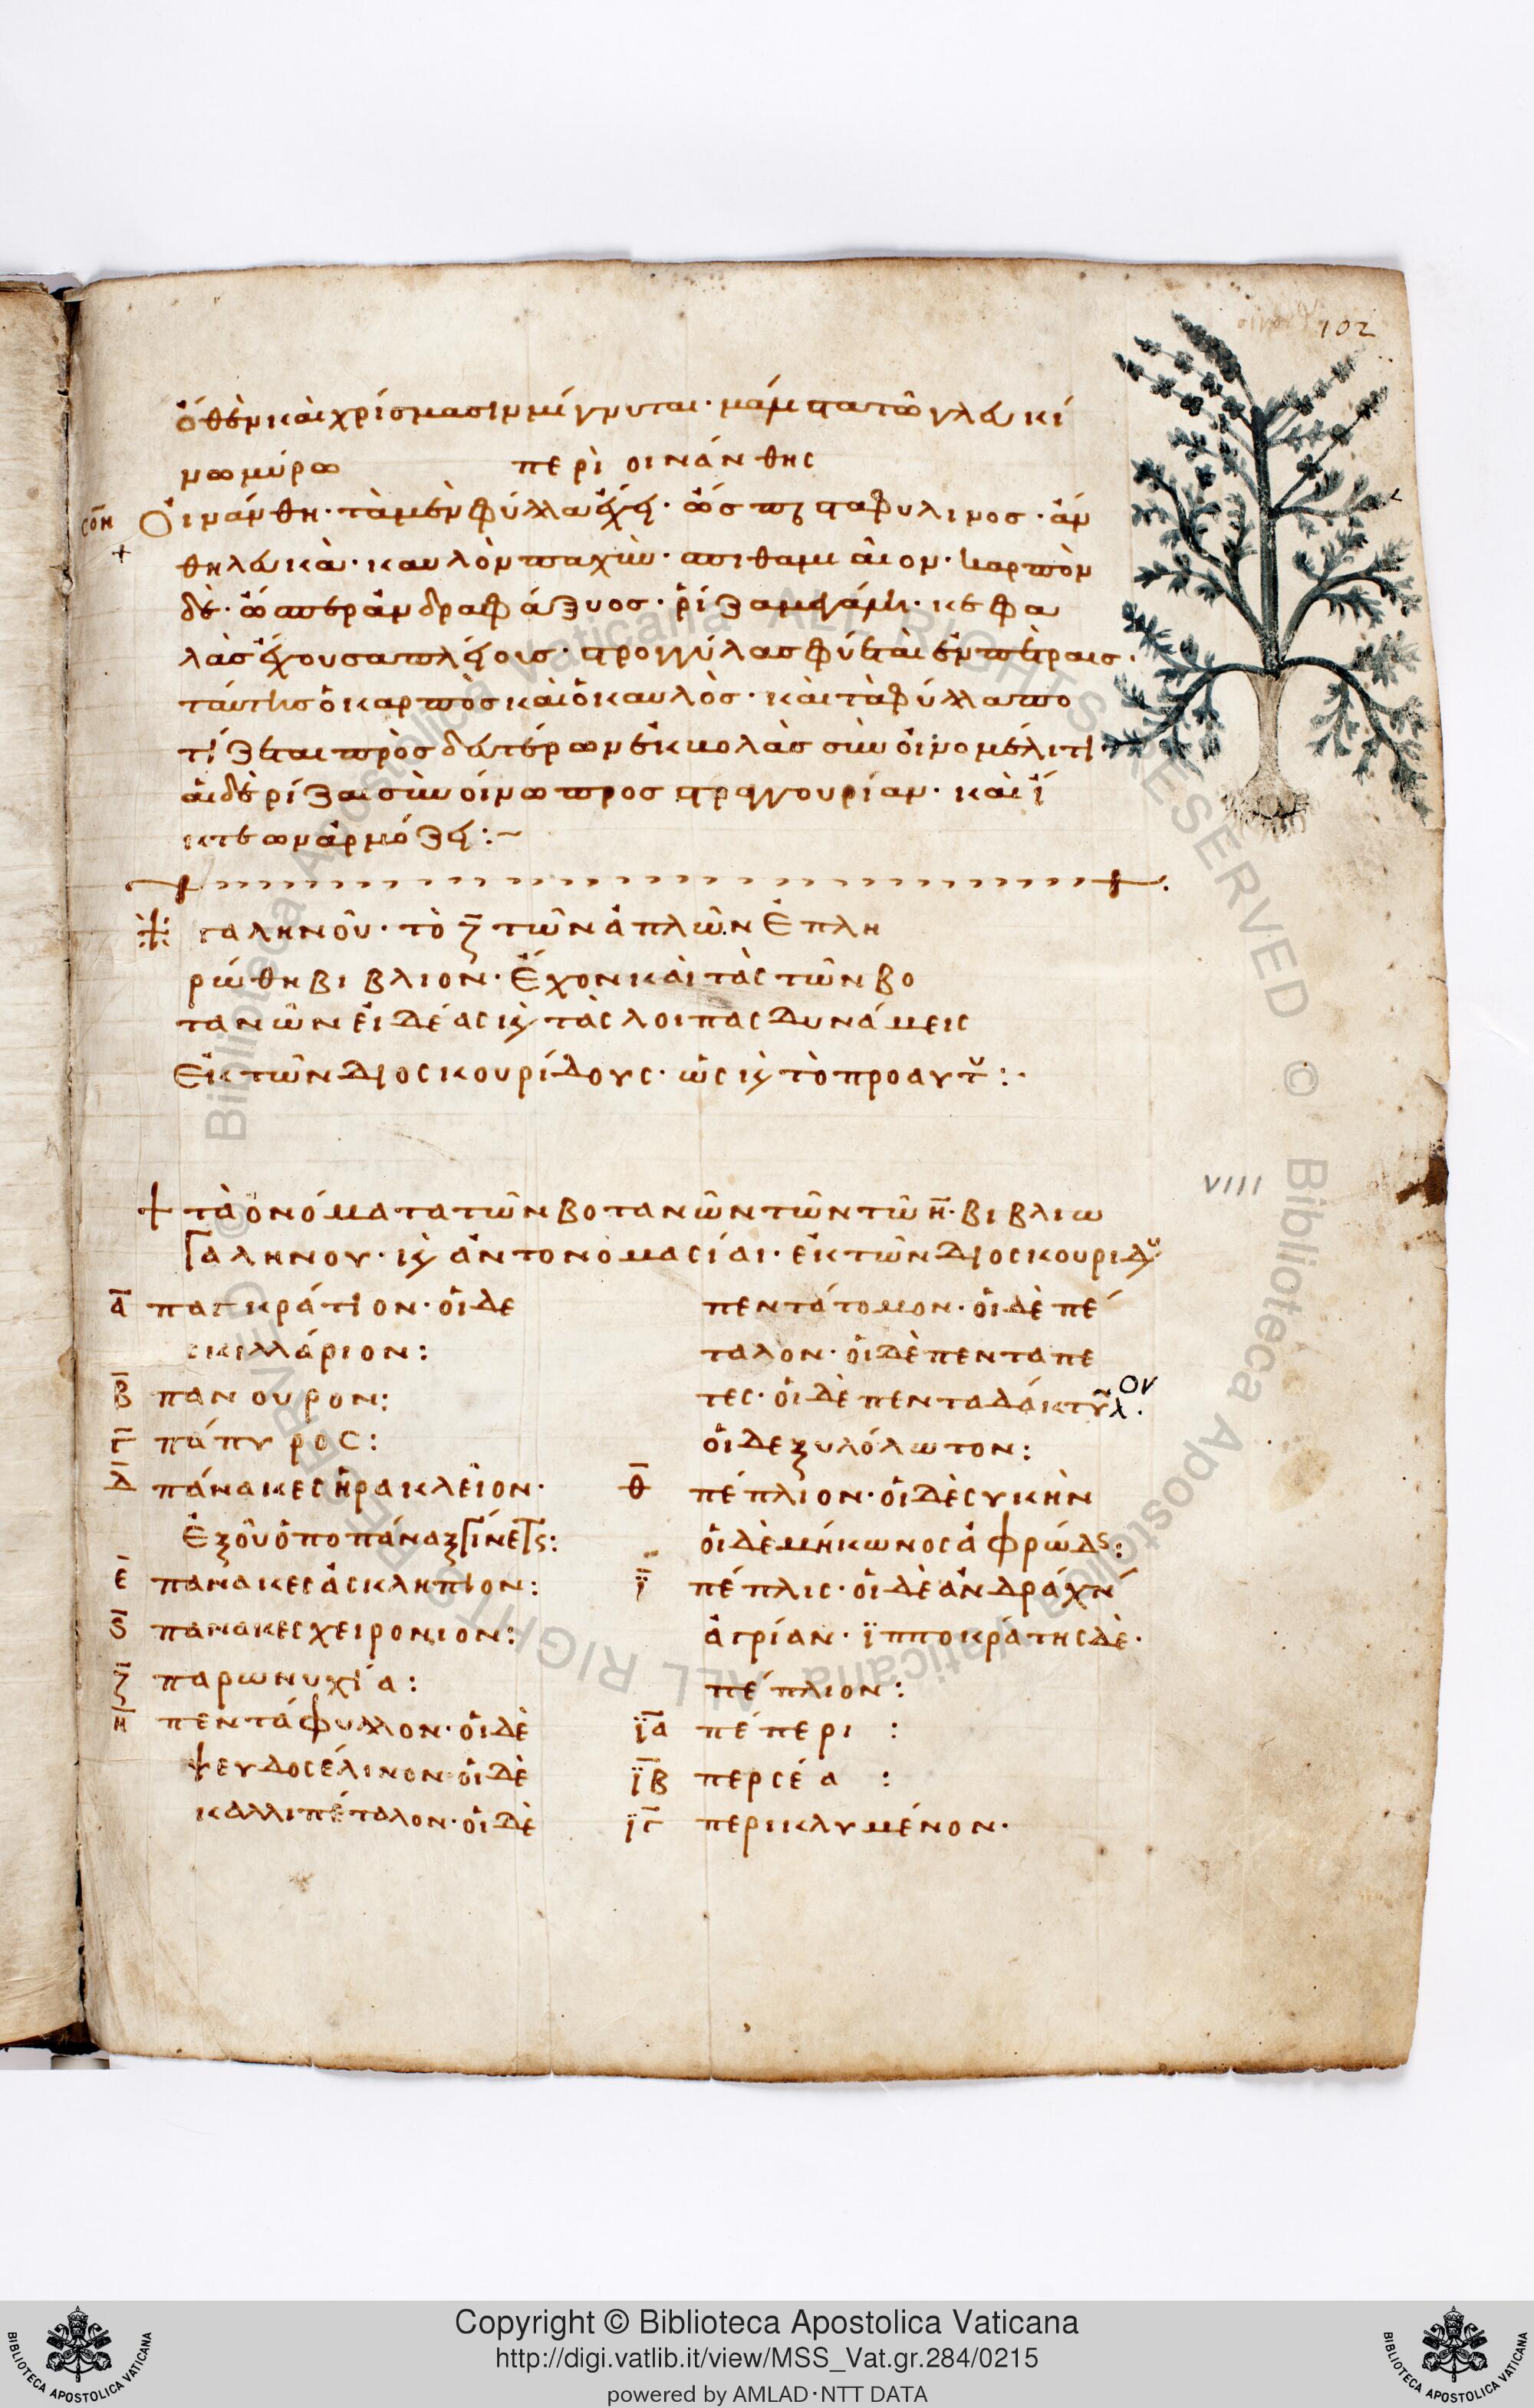 102
ὅθεν καὶ χρίσμασιν μίγνυται· μάλιστα τῶ γλευκί
νω μύρω
περὶ οινάνθης
Οἰνάνθη· τὰ μὲν φύλλα ἔχει· ὥσπερ σταφυλῖνος· ἄν
θη λευκὰ· καυλὸν παχὺν· σπιθαμιαῖον· καρπὸν
δὲ· ὥσπερ ἀνδραφάξυος· ῥίζα μεγάλη· κεφα
λὰς ἔχουσα πλείους· στρογγύλας φύεται ἐν πέτραις·
ταύτης ὁ καρπὸς καὶ ὁ καυλὸς· καὶ τὰ φύλλα πο
τίζεται πρὸς δευτέρων ἐκβολὰς σὺν οἰνομέλιτι
αἱ δὲ ρίζαι σὺν οίνω προς στραγγουρίαν· καὶ ἴ
κτεων ἁρμόζει:~
γαληνοῦ· τὸ ζ τῶν ἁπλῶν Ἐπλη
ρώθη βιβλιον· Ἔχον καὶ τὰς τῶν βο
τανῶν εἰδέας κὶ τὰς λοιπας δυνάμεις
Ἐκ τῶν Διοσκουρίδους· ὡς κὶ τὸ προ αυτοῦ:·
VIII
+ τὰ ὀνόματα τῶν βοτανῶν τῶν τῶ η· βιβλιω
Γαληνου· κὶ ἀντονομασίαι· ἐκ τῶν Διοσκουριδου
α παγκράτιον· οἵ δε
σκιλλάριον:
β πανουρον:
γ πάπυρος:
δ πάνακες ἡρακλεῖον·
Ἐξ οὗ ὀποπάναξ γίνεται:
ε πανακες ἀσκληπιον:
ς πανακες χειρονιον:
ζ παρωνυχία:
η πεντάφυλλον· οἵ δὲ
ψευδοσέλινον· οἵ δὲ
καλλιπέταλον· οἵ δὲ
πεντάτομον· οἵ δὲ πέ
ταλον· οἵ δὲ πενταπε
τες· οἵ δὲ πενταδάκτυλον.
οἵ δε ξυλόλωτον:
θ πέπλιον· οἵ δὲ συκὴν
οἵ δὲ μήκωνος ἀφρώδς:
ϊ πέπλις· οἵ δὲ ἀνδράχνη
ἀγρίαν· ϊπποκράτης δὲ·
πέπλιον:
ϊα πέπερι :
ϊβ περσέα :
ϊγ περικλυμένον·
© Biblioteca Apostolica Vaticana ALL RIGHTS RESERVED © Biblioteca Apostolica Vaticana ALL RIGHTS RESERVED
Copyright © Biblioteca Apostolica Vaticana
http://digi.vatlib.it/view/MSS_Vat.gr.284/0215
powered by AMLAD·NTT DATA
BIBLIOTECA APOSTOLICA VATICANA
BIBLIOTECA APOSTOLICA VATICANA